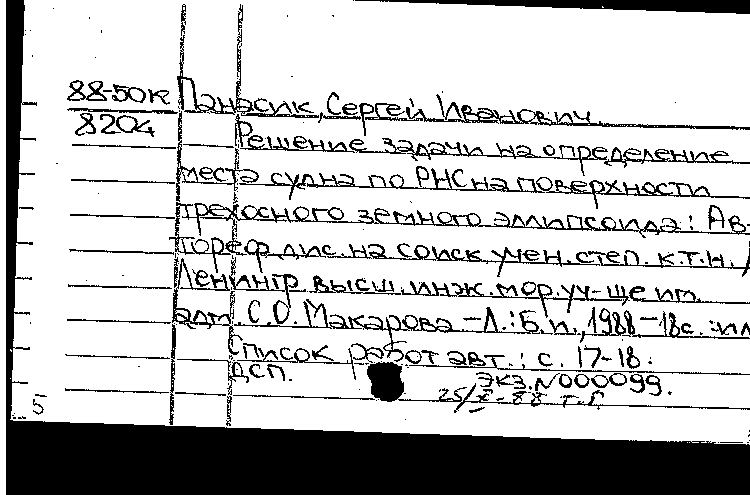 88-50к Панасик, Сергей Иванович.
8204 Решение задачи на определение
места судна по РНС на поверхности
трехосного земного эллипсоида: Ав-
тореф. дис. на соиск. учен. степ. к.т.н. /
Ленингр. высш. инж. мор. уч-ще им.
адм. С.О. Макарова. -Л.: Б.и., 1988 -18с. :ил
Список работ авт.: с. 17-18.
ДСП. Экз. №000099.
25/X-88 т.г.
5